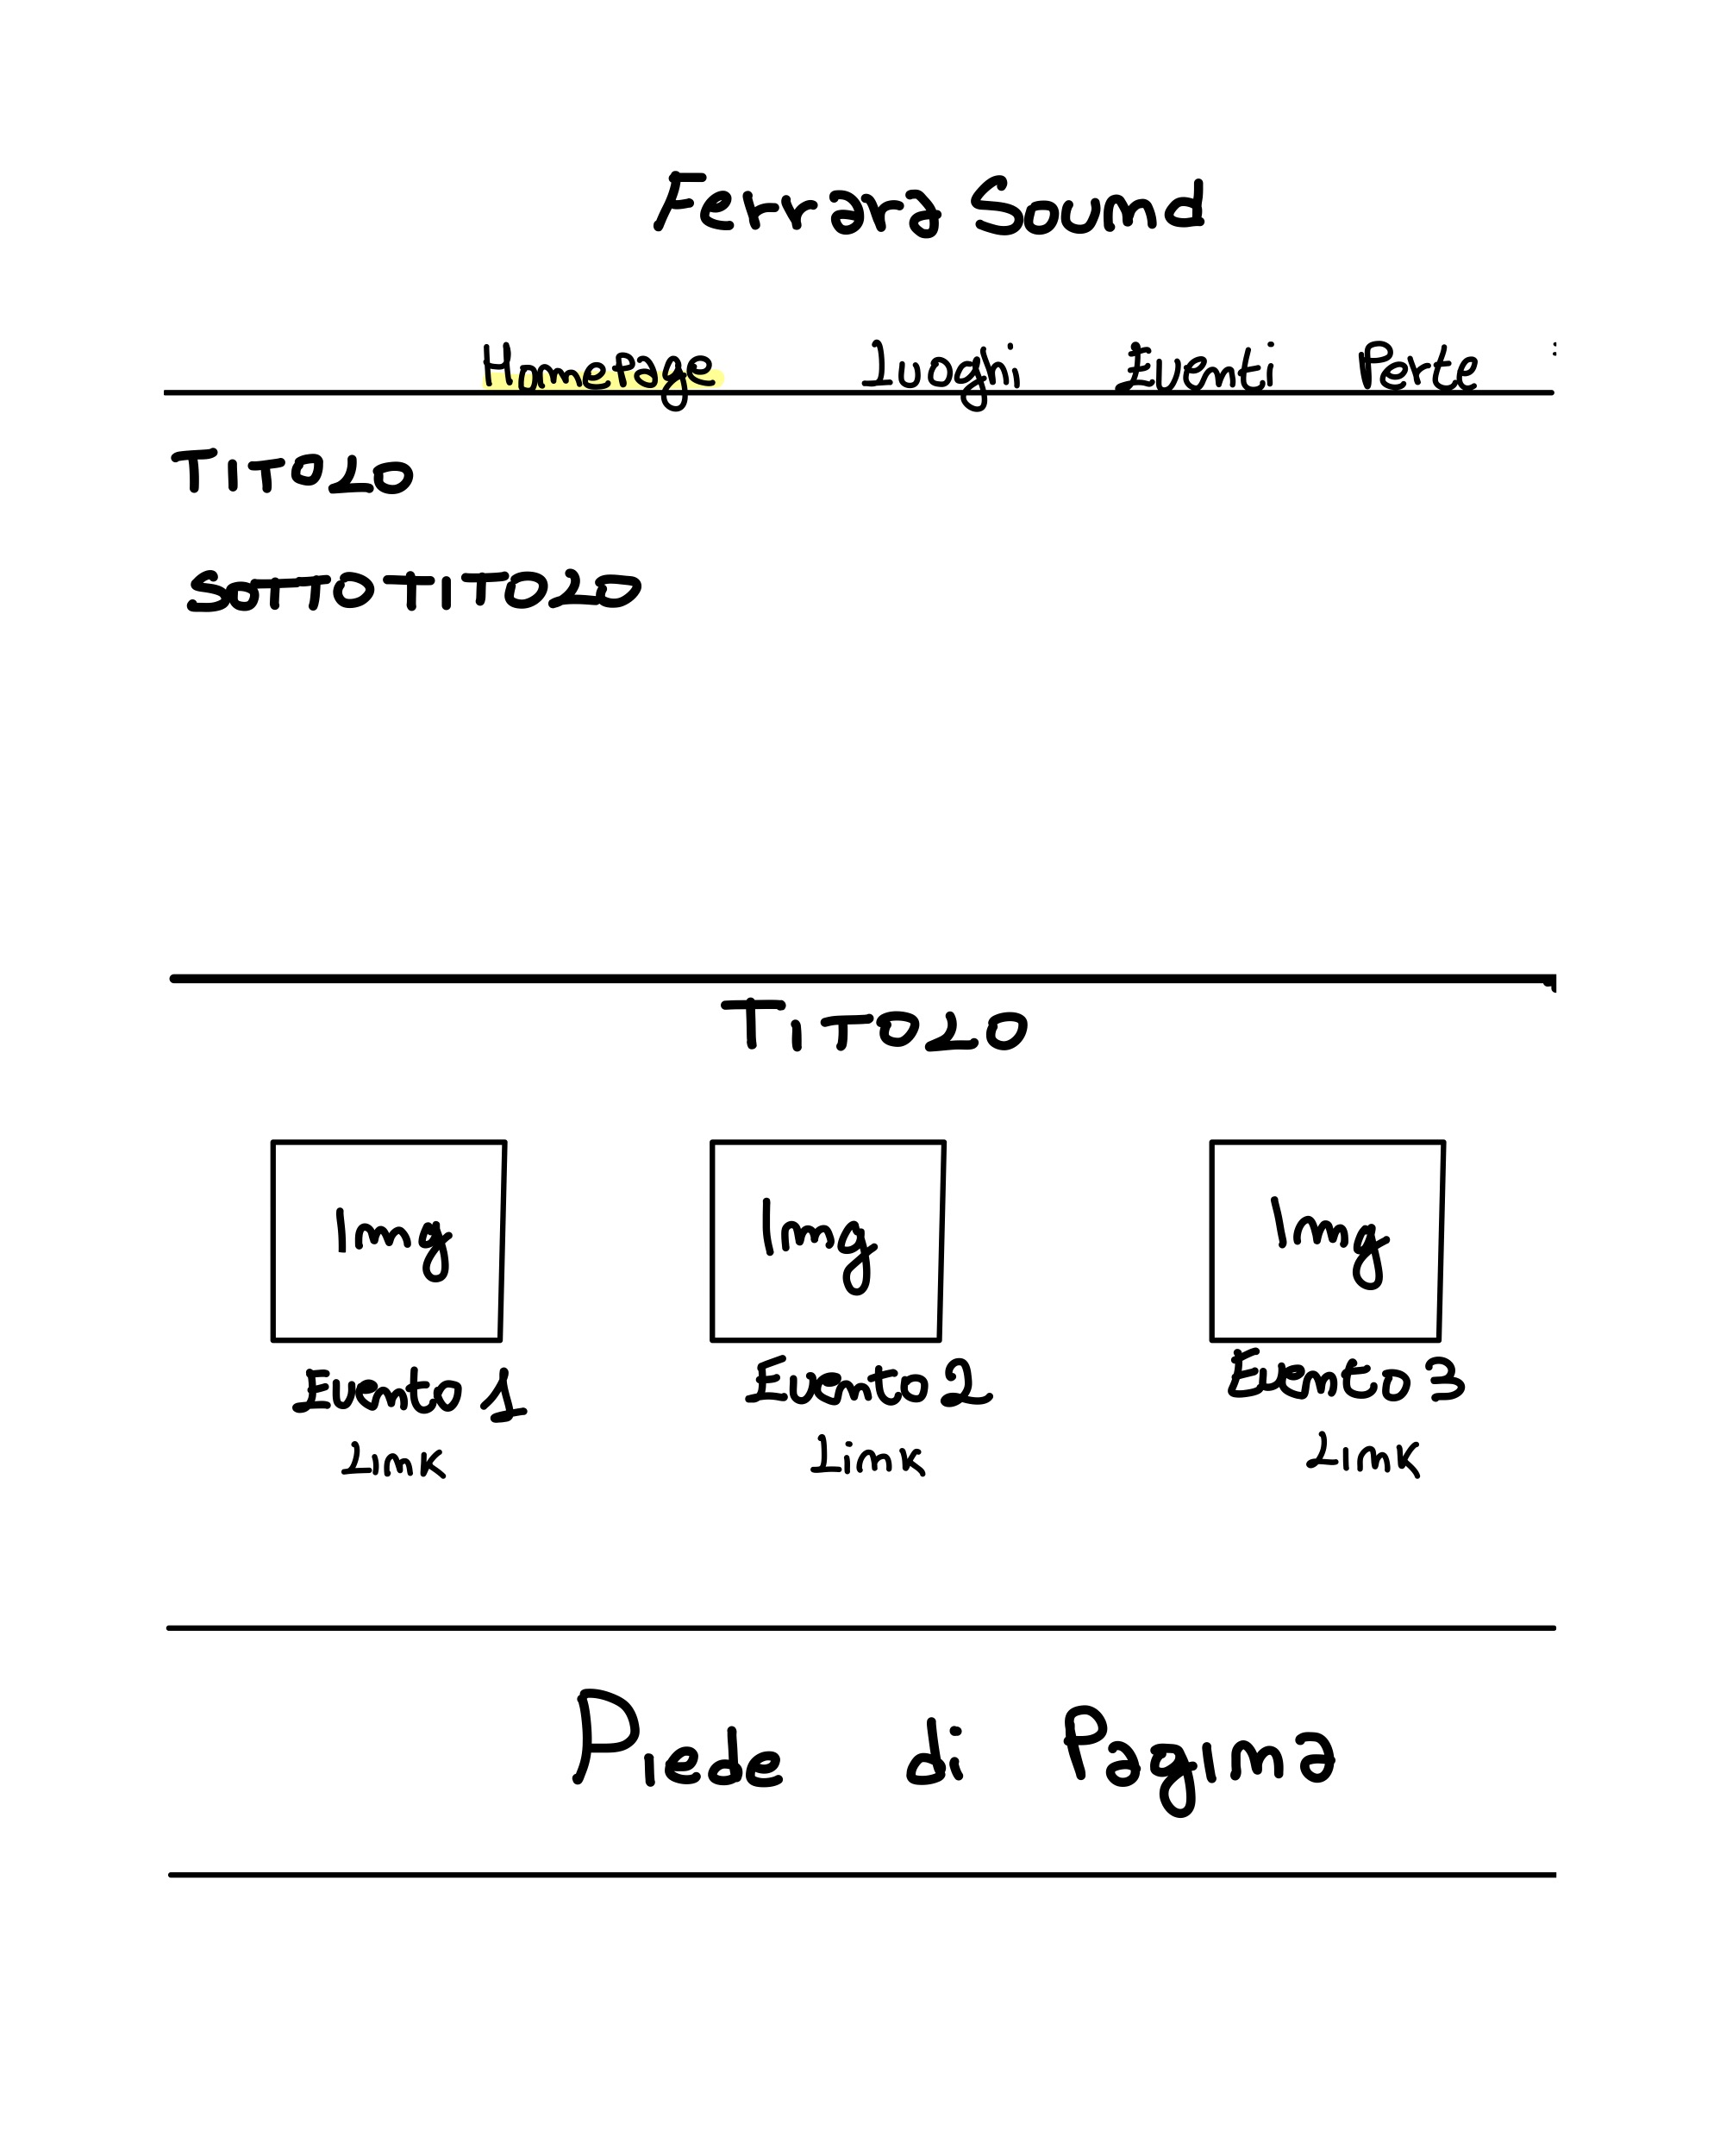 Ferrara Sound
Homepage Luoghi Eventi Perte
TITOLO
SOTTOTITOLO
TITOLO
Img Img Img
Evento 1 Evento 2 Evento 3
Link Link Link
Piede di Pagina